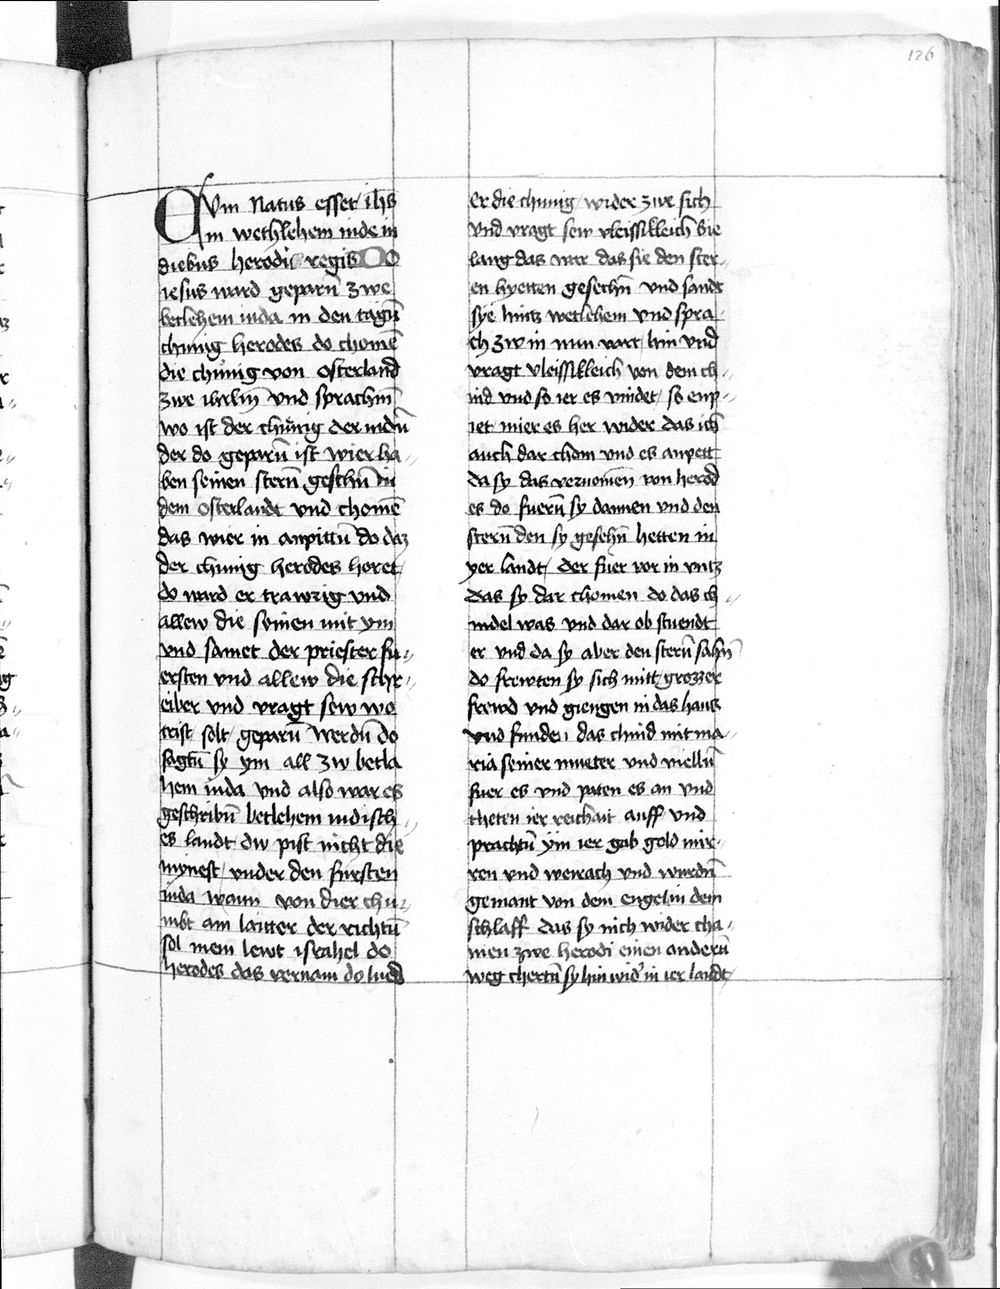 126
CVm Natus esset ih̄s
in wethlehem iude in
diebus herodis regis DO
iesus ward geparn̄ zwe
betlehem iuda in den tägn̄
chunig herodes do chomē
die chunig von osterland
zwe ihrlm̄ vnd sprachm̄
wo ist der chunig der iudn̄
der do geparn̄ ist wier ha„
ben seinen stern̄ geschn̄ in
dem osterlandt vnd chomē
das wier in anpittn̄ do daz
der chunig herodes horet
do ward er trawrig vnd
allew die seinen mit ym
vnd samet der priester fu„
ersten vnd allew die schr„
eiber vnd vragt sew wo
crist solt geparn̄ werdn̄ do
sagtn̄ sy ym all zw betla
hem iuda vnd also war es
geschribn̄ betlehem iudisch„
es landt dw pist nicht die
mynest vnder den fursten
iuda wann von dier chu„
mbt am laitter der richtn̄
sol mein lewt israhel do
herodes das vernam do lued
er die chunig wider zwe sich
vnd vragt sew vleissikleich Sie
lang das wer das sie den ster„
en hyetten gesechn̄ vnd sandt
sye hintz wetlehem vnd spra„
ch zw in nun vart hin vnd
vragt vleissikleich von dem ch„
ind vnd so ier es vindet so enp„
iet mier es her wider das ich
auch dar chom vnd es anpett
da sy das vernomen von herod
es do fuern̄ sy dannen vnd den
stern̄ den sy gesehn̄ hetten in
yer landt der fuer vor in vntz
das sy dar chomen do das ch„
indel was vnd dar ob stuendt
er vnd da sy aber den stern̄ sahn̄
do frewten sy sich mitt grozzer
frewd vnd giengen in das haus
vnd funden das chind mit ma„
ria seiner mueter vnd vielln̄
fuer es vnd paten es an vnd
theten ier reichait auff vnd
prachtn̄ ym ier gab gold mir„
ren vnd weirach vnd wurdn̄
gemant von dem engel in dem
schlaff das sy nich wider cha„
men zwe herodi einen andern̄
weg chertn̄ sy hin wid' in ier landt